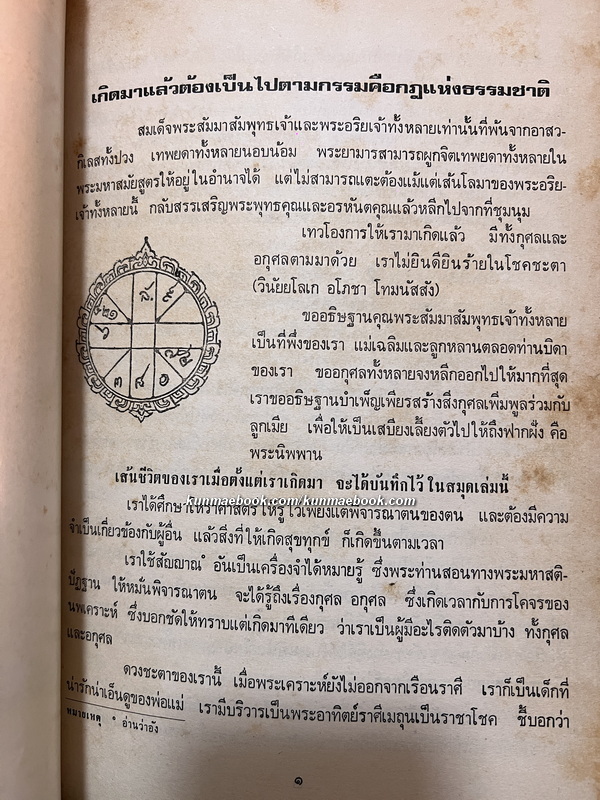 เกิดมาแล้วต้องเป็นไปตามกรรมคือกฎแห่งธรรมชาติ
สมเด็จพระสัมมาสัมพุทธเจ้าและพระอริยเจ้าทั้งหลายเท่านั้นที่พ้นจากอาสว-
กิเลสทั้งปวง เทพยดาทั้งหลายนอบน้อม พระยามารสามารถผูกจิตเทพยดาทั้งหลายใน
พระมหาสมัยสูตรให้อยู่ในอำนาจได้ แต่ไม่สามารถแตะต้องแม้แต่เส้นโลมาของพระอริย-
เจ้าทั้งหลายนี้ กลับสรรเสริญพระพุทธคุณและอรหันตคุณแล้วหลีกไปจากที่ชุมนุม
เทวโองการให้เรามาเกิดแล้ว มีทั้งกุศลและ
อกุศลตามมาด้วย เราไม่ยินดียินร้ายในโชคชะตา
(วินัยยโลเก อโภชา โทมนัสสัง)
ขออธิษฐานคุณพระสัมมาสัมพุทธเจ้าทั้งหลาย
เป็นที่พึ่งของเรา แม่เฉลิมและลูกหลานตลอดท่านบิดา
ของเรา ขออกุศลทั้งหลายจงหลีกออกไปให้มากที่สุด
เราขออธิษฐานบำเพ็ญเพียรสร้างสิ่งกุศลเพิ่มพูลร่วมกับ
ลูกเมีย เพื่อให้เป็นเสบียงเลี้ยงตัวไปให้ถึงฟากฝั่ง คือ
พระนิพพาน
เส้นชีวิตของเราเมื่อตั้งแต่เราเกิดมา จะได้บันทึกไว้ในสมุดเล่มนี้
kunmaebook.com/kunmaebook.com
เราได้ศึกษาโหราศาสตร์ให้รู้ไว้เพียงแต่พิจารณาตนของตน และต้องมีความ
จำเป็นเกี่ยวข้องกับผู้อื่น แล้วสิ่งที่ให้เกิดสุขทุกข์ ก็เกิดขึ้นตามเวลา
เราใช้สัญญาณ ํ อันเป็นเครื่องจำได้หมายรู้ ซึ่งพระท่านสอนทางพระมหาสติ-
ปัฏฐาน ให้หมั่นพิจารณาตน จะได้รู้ถึงเรื่องกุศล อกุศล ซึ่งเกิดเวลากับการโคจรของ
นพเคราะห์ ซึ่งบอกชัดให้ทราบแต่เกิดมาทีเดียว ว่าเราเป็นผู้มีอะไรติดตัวมาบ้าง ทั้งกุศล
และอกุศล
ดวงชะตาของเรานี้ เมื่อพระเคราะห์ยังไม่ออกจากเรือนราศี เราก็เป็นเด็กที่
น่ารักน่าเอ็นดูของพ่อแม่ เรามีบริวารเป็นพระอาทิตย์ราศีเมถุนเป็นราชาโชค ชี้บอกว่า
หมายเหตุ ํ อ่านว่าอัง
๑